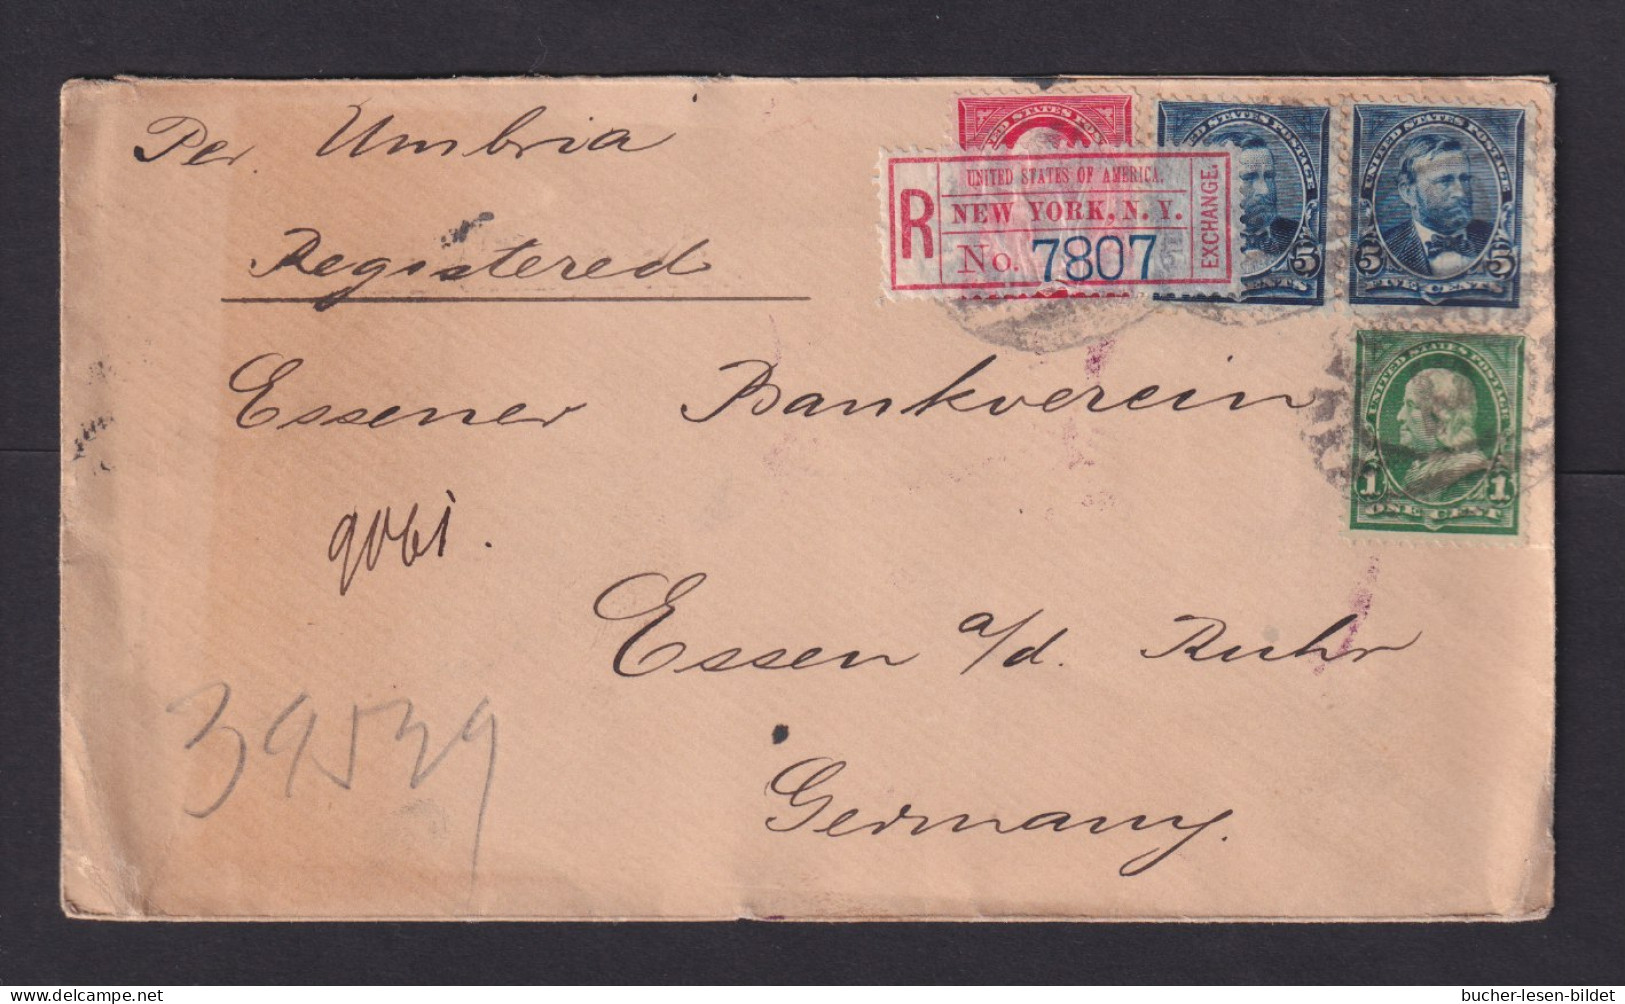 Per Umbria
Registered
UNITED STATES POSTAGE
UNITED STATES POSTAGE
R
UNITED STATES OF AMERICA.
NEW YORK, N. Y.
No. 7807
EXCHANGE.
5
5 5
FIVE CENTS
UNITED STATES POSTAGE
1 1
ONE CENT
Essener Bankverein
9061.
Essen a/d. Ruhr
39539
Germany.
bucher-lesen-bildet